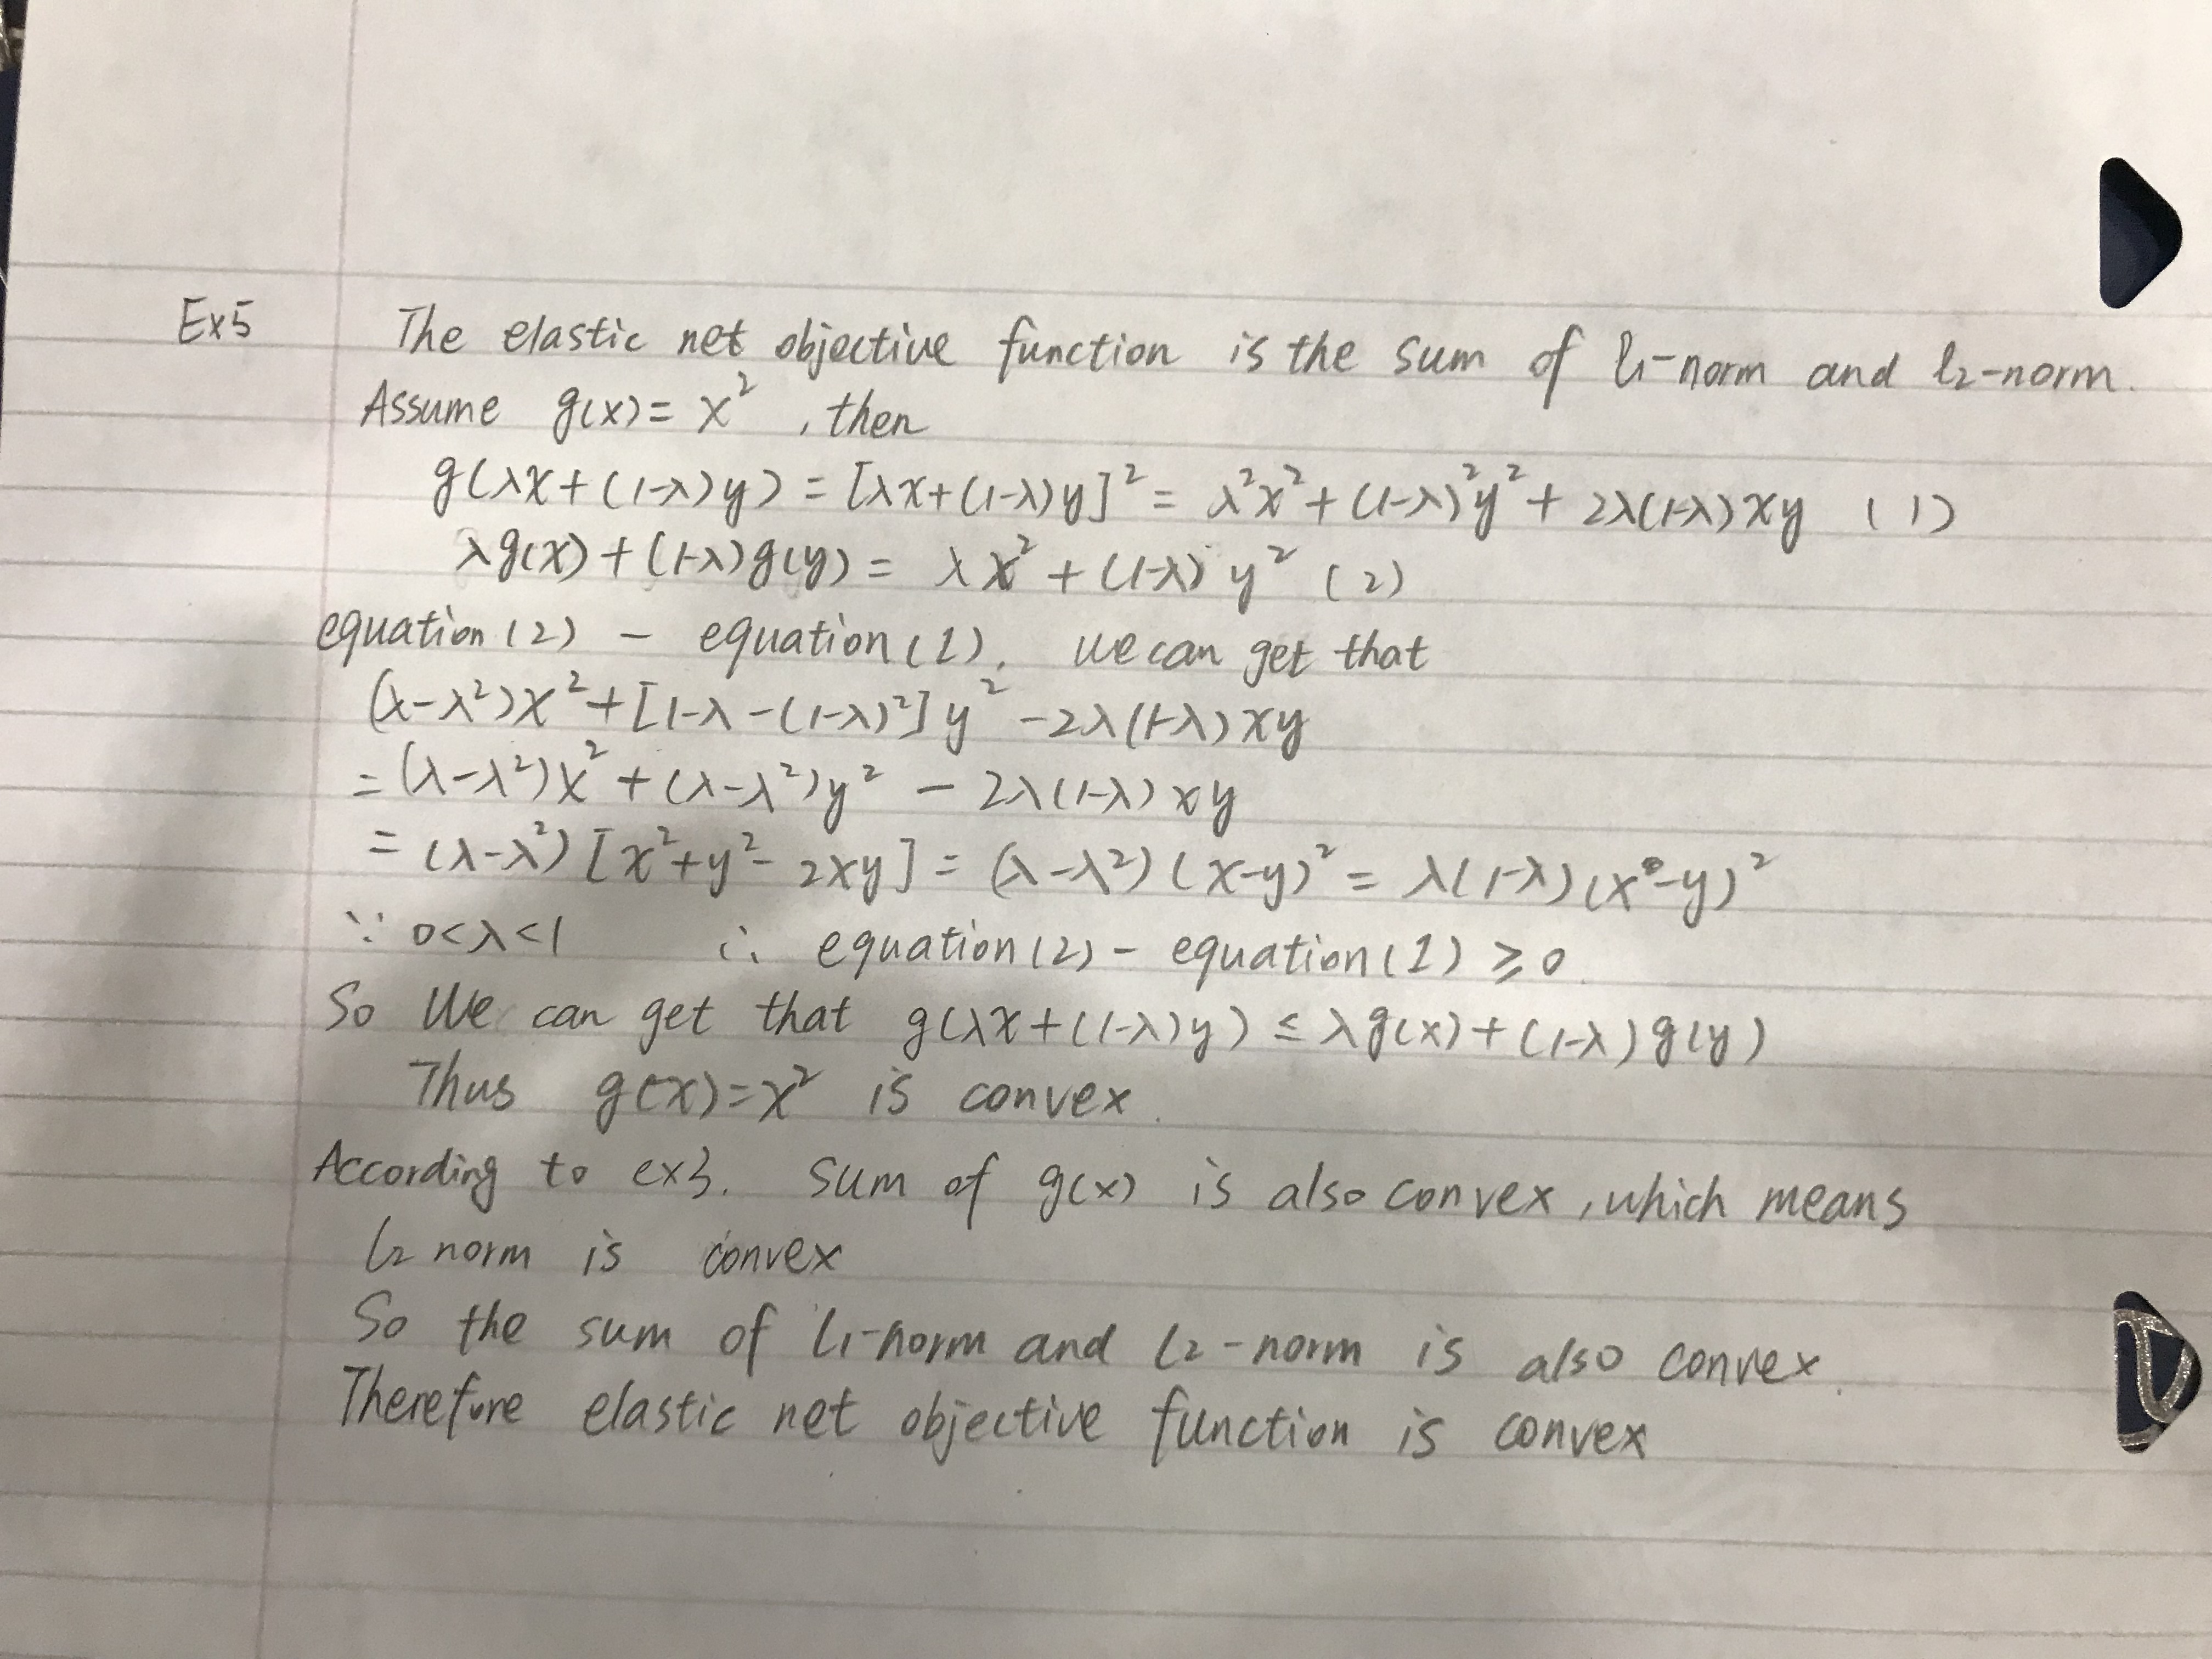 Ex5 The elastic net objective function is the sum of l₁-norm and l₂-norm.
Assume g(x) = x² , then
g(λx+(1-λ)y) = [λx+(1-λ)y]² = λ²x²+(1-λ)²y²+ 2λ(1-λ)xy (1)
λg(x)+(1-λ)g(y) = λx²+(1-λ)y² (2)
equation(2) - equation(1), we can get that
(λ-λ²)x²+[1-λ-(1-λ)²]y²-2λ(1-λ)xy
= (λ-λ²)x²+(λ-λ²)y² - 2λ(1-λ)xy
= (λ-λ²)[x²+y²- 2xy] = (λ-λ²)(x-y)² = λ(1-λ)(x-y)²
∵ 0<λ<1 ∴ equation(2) - equation(1) ≥ 0
So We can get that g(λx+(1-λ)y) ≤ λg(x)+(1-λ)g(y)
Thus g(x)=x² is convex.
According to ex3. Sum of g(x) is also convex, which means
l₂ norm is convex
So the sum of l₁-norm and l₂-norm is also convex.
Therefore elastic net objective function is convex